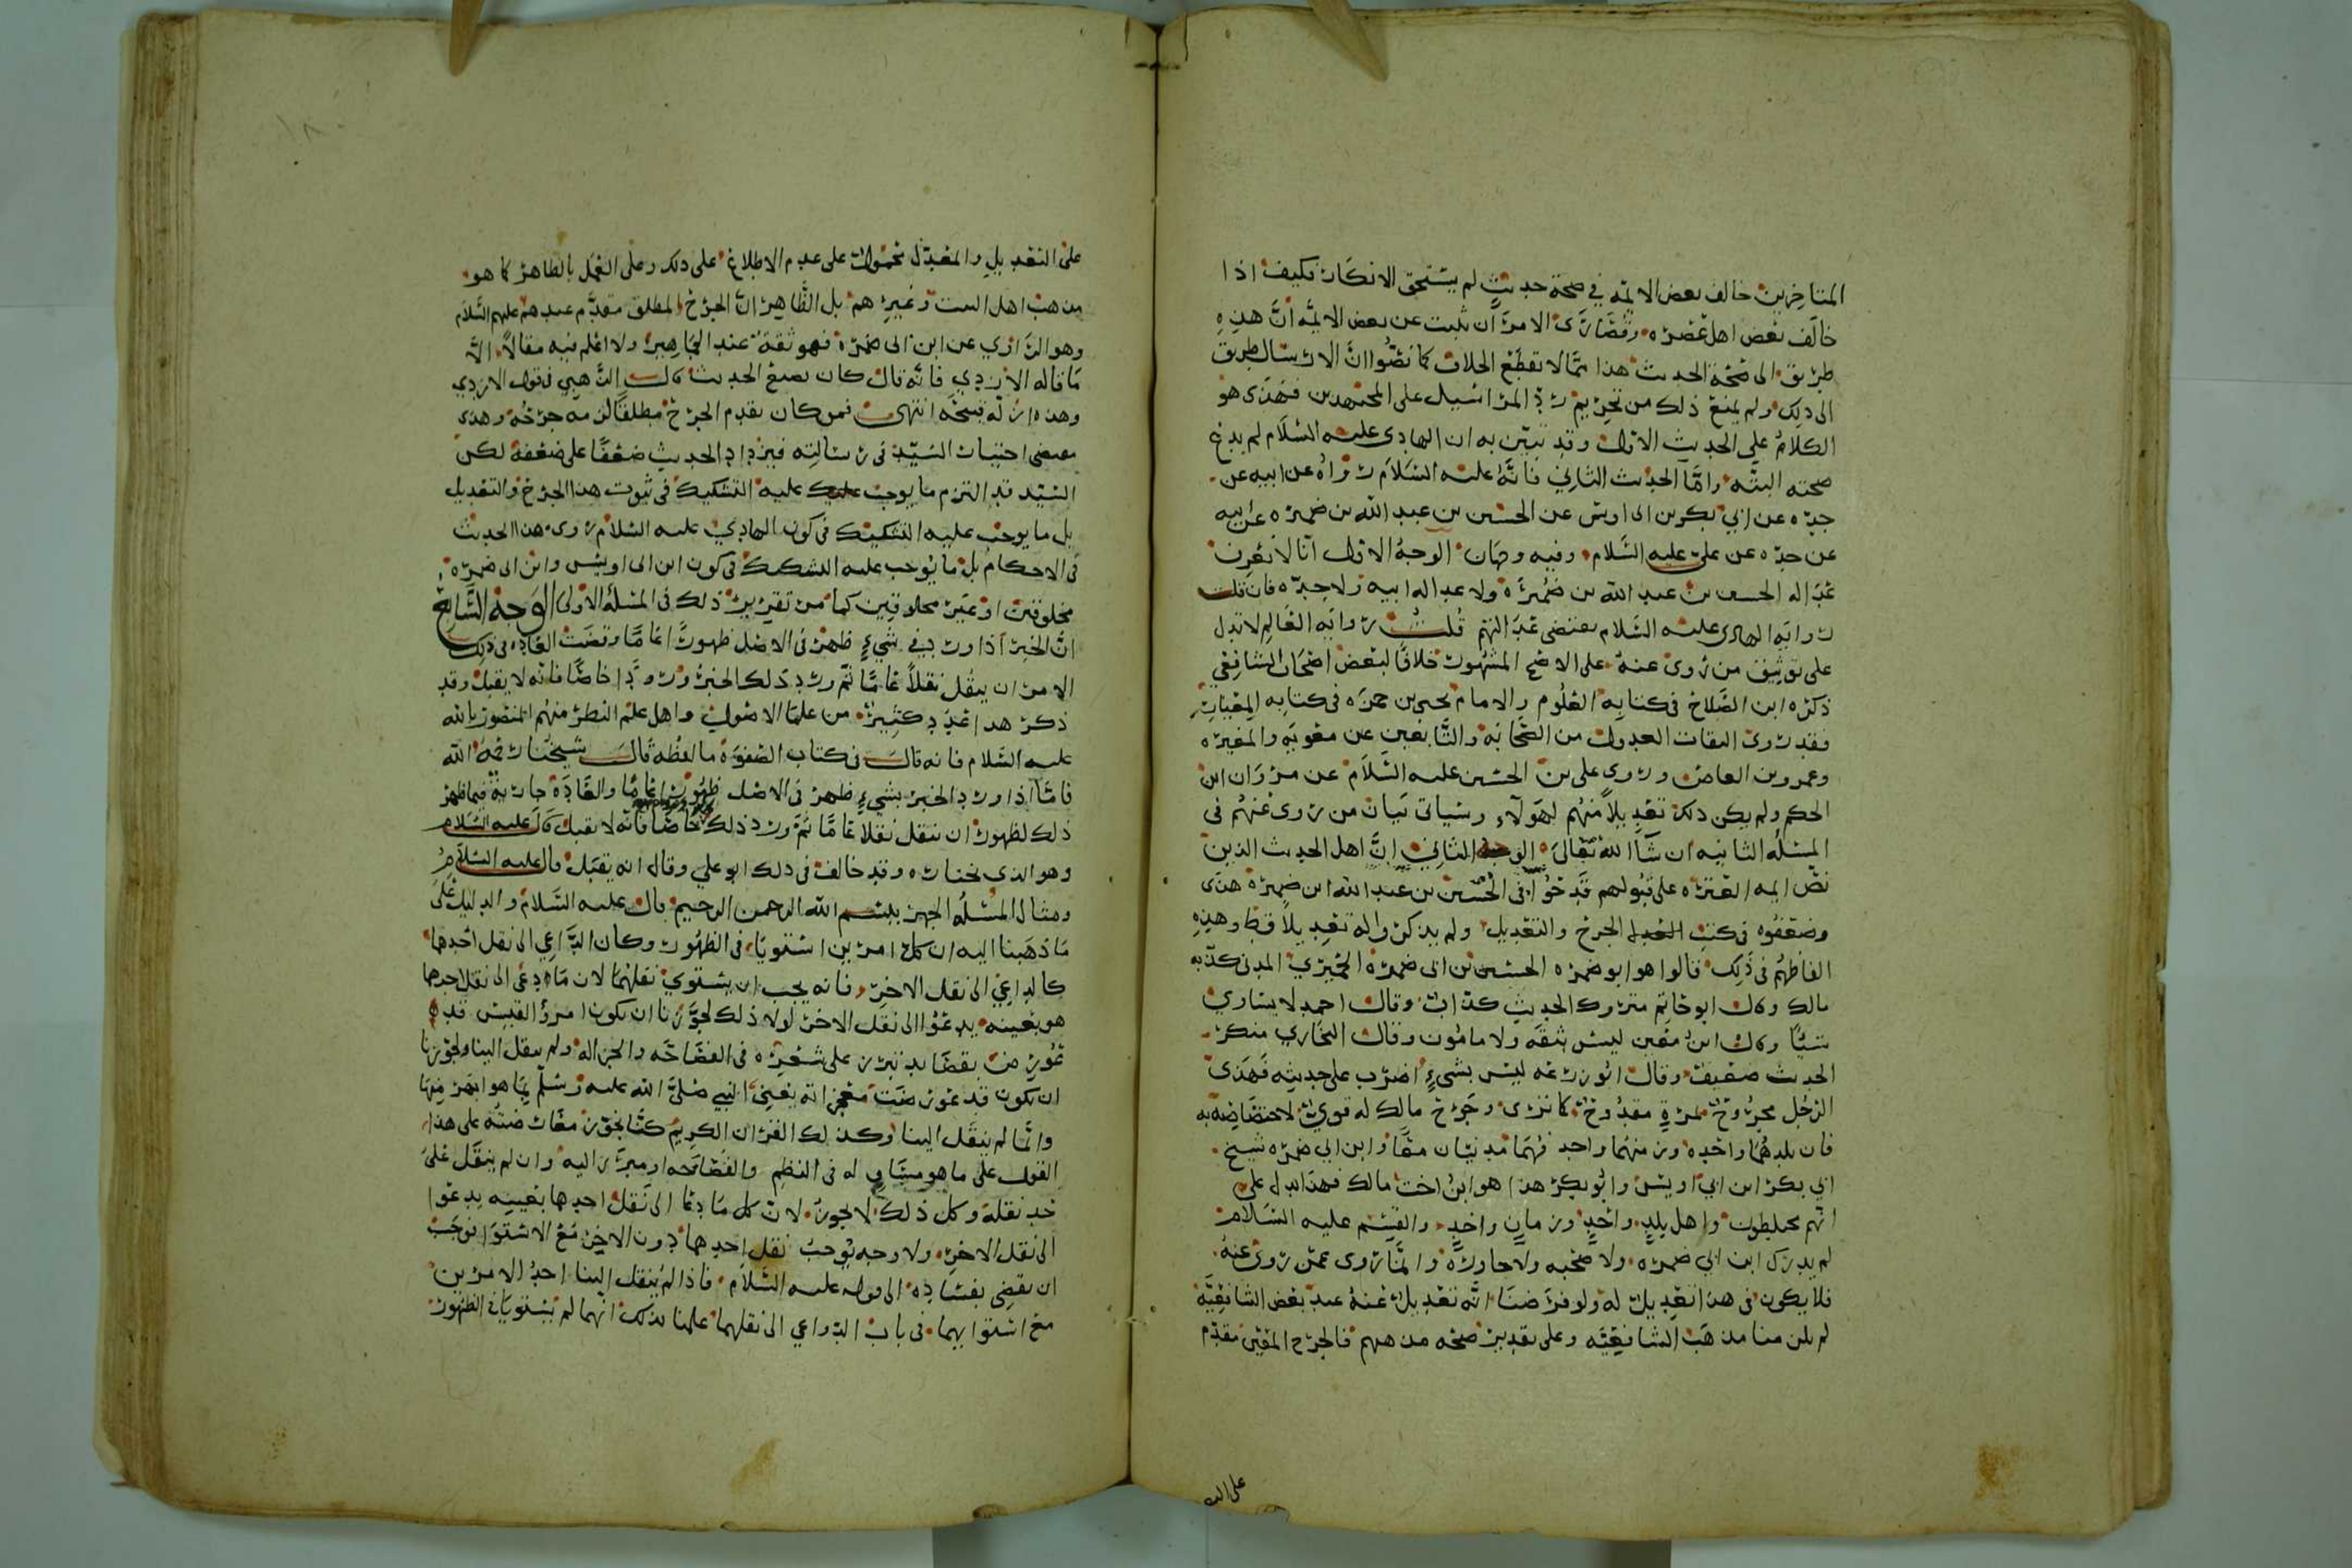 المتاخرين خالف بعض الائمه في صحة حديث لم يستحق الانكار فكيف اذا
خالف بعض اهل عصره وقصارى الامر ان يثبت عن بعض الائمه ان هذه
طريق الى صحة الحديث هذا مما لا تقطع الخلاف كما نصوا ان الارسال طريق
الى ذلك ولم يمنع ذلك من تحريم رد المراسيل على المجتهدين فهذى هو
الكلام على الحديث الاول وقد تبين به ان الهادي عليه السلام لم يدع
صحته البته واما الحديث الثاني فانه عليه السلام رواه عن ابيه عن
جده عن ابي بكر بن ابي اويس عن الحسين بن عبد الله بن ضميره عن ابيه
عن جده عن علي عليه السلام وفيه وجهان الوجه الاول انا لا نعرف
عداله الحسين بن عبد الله بن ضميرة ولا عداله ابيه ولا جده فان قلت
روايه الهادى عليه السلام يقتضى عدالتهم قلت روايه العالم لا تدل
على توثيق من روى عنه على الاصح المشهور خلافا لبعض اصحاب الشافعي
ذكره ابن الصلاح في كتابه العلوم والامام يحيى بن حمزه في كتابه المعيار
فقد روى الثقات العدول من الصحابه والتابعين عن معويه والمغيره
وعمرو بن العاص وروى على بن الحسين عليه السلام عن مروان ابن
الحكم ولم يكن ذلك تعديلا منهم لهولاء وسياتى بيان من روى عنهم في
المسئله الثانيه ان شاالله تعالى الوجه الثاني ان اهل الحديث الذين
نص ايمه العتره على قبولهم قدحوا في الحسين بن عبد الله ابن ضميرة هذى
وضعفوه في كتب الجرح والتعديل ولم يذكروا له تعديلا قط وهذه
الفاظهم في ذلك قالوا هو ابو ضميره الحسين بن ابي ضميره الحميري المدني كذبه
مالك وقال ابو حاتم متروك الحديث كذاب وقال احمد لا يساوي
شيئا وقال ابن معين ليس بثقه ولا مامون وقال البخاري منكر
الحديث ضعيف وقال ابو زرعه ليس بشيء اضرب على حديثه فهذى
الرجل مجروح بمرة مقدوح كما ترى وجرح مالك له قوي لاختصاصه به
فان بلدهما واحده وزمنهما واحد فهما مدنيان معا وابن ابي ضميره شيخ
ابي بكر ابن ابي اويس وابو بكر هذا هو ابن اخت مالك فهذا يدل على
انهم مختلطون واهل بلد واحد وزمان واحد والقسم عليه السلام
لم يدرك ابن ابي ضميره ولا صحبه ولا جاوره وانما روى عمن روى عنه
فلا يكون في هذا تعديل له ولو فرضنا انه تعديل عنه عند بعض الشافعيه
لم يلزمنا مذهب الشافعيه وعلى تقدير صحه مذهبهم فالجرح المفسر مقدم
على التعد
على التعديل والمعدل محمول على عدم الاطلاع على ذلك وعلى العمل بالظاهر كما هو
مذهب اهل البيت وغيرهم بل الظاهر ان الجرح المطلق مقدم عندهم عليهم السلام
وهو الرازي عن ابن ابى ضمره فهو ثقة عند الجماهير ولا اعلم فيه مقالا الا
ما قاله الازدي فانه قال كان يضع الحديث قال الذهبي قول الازدي
وهذه زلة قبيحه انتهى فمن كان يقدم الجرح مطلقا لزمه جرحه وهذى
مقتضى اختيار السيد في رسالته فيزداد الحديث ضعفا على ضعفه لكن
السيد قد التزم ما يوجب عليه التشكيك في ثبوت هذا الجرح والتعديل
بل ما يوجب عليه التشكيك في كون الهادي عليه السلام روى هذا الحديث
في الاحكام بل ما يوجب عليه التشكيك في كون ابن ابي اويس وابن ابى ضميره
مخلوقين او غير مخلوقين كما مر تقرير ذلك في المسئله الاولى الوجه السابع
ان الخبر اذا ورد في شيء ظهر في الاصل ظهورا عاما وقضت العاده في ذلك
الامر ان ينقل نقلا عاما ثم ورد ذلك الخبر ورودا خاصا فانه لا يقبل وقد
ذكر هذا عدد كثير من علما الاصول واهل علم النظر منهم المنصور بالله
عليه السلام فانه قال في كتاب الصفوة ما لفظه قال شيخنا رحمه الله
فاما اذا ورد الخبر بشيء ظهر في الاصل ظهورا عاما والعادة جاريه فيما ظهر
ذلك الظهور ان ينقل نقلا عاما ثم ورد ذلك خاصا فانه لا يقبل قال عليه السلام
وهو الذى نختاره وقد خالف في ذلك ابو علي وقال انه يقبل قال عليه السلام
ومثال المسئله الجهر ببسم الله الرحمن الرحيم قال عليه السلام والدليل على
ما ذهبنا اليه ان كل امرين استويا في الظهور وكان الداعي الى نقل احدهما
كالداعي الى نقل الاخر فانه يجب ان يستوي نقلهما لان ما دعى الى نقل احدهما
هو بعينه يدعوا الى نقل الاخر لولا ذلك لجوزنا ان يكون امرؤ القيس قد
عورض بقصايد تبرز على شعره في الفصاحه والجزاله ولم ينقل الينا ولجوزنا
ان يكون قد عورضت معجزاته يعني النبي صلى الله عليه وسلم بما هو ابهر منها
وانما لم ينقل الينا وكذلك القران الكريم كنا نجوز معارضته على هذا
القول على ما هو مساو له في النظم والفصاحه او مبرز اليه وان لم ينقل على
حد نقله وكل ذلك لا يجوز لان كل ما دعا الى نقل احدها بعينه يدعوا
الى نقل الاخر ولا وجه يوجب نقل احدهما دون الاخر مع الاستوا فوجب
ان يقضى بفساده الى قوله عليه السلام فاذا لم ينقل الينا احد الامرين
مع استوايهما في باب الدواعي الى نقلهما علمنا بذلك انهما لم يستويا في الظهور